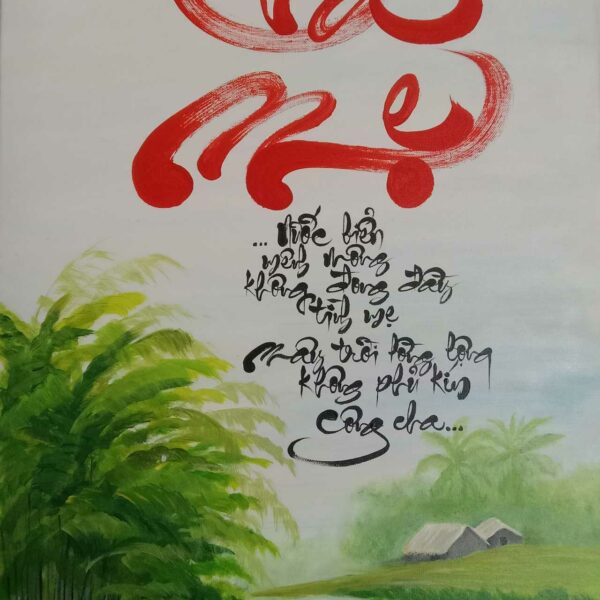 Cha
Mẹ
... Nước biển
mênh mông
không đong đầy
tình mẹ
Mây trời lồng lộng
không phủ kín
công cha...